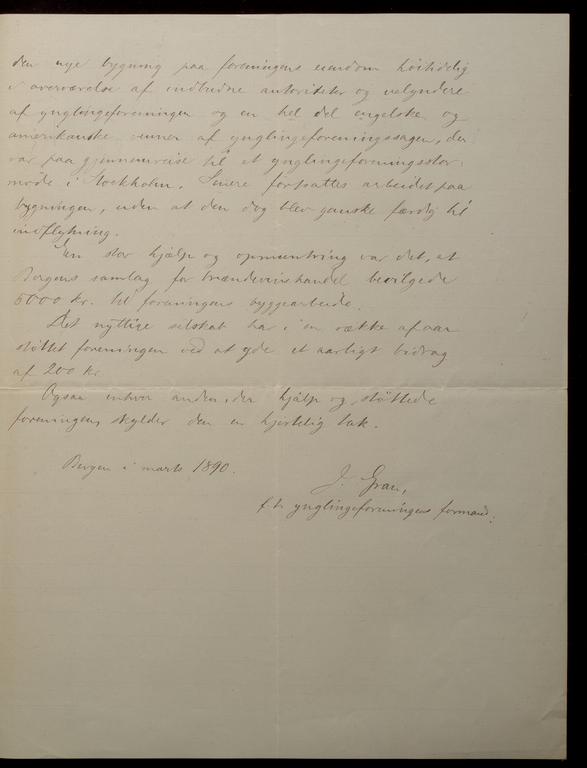 den nye bygning paa foreningens eiendom høitidelig
i overværelse af indbudne autoriteter og velyndere
af ynglingeforeningen og en hel del engelske og
amerikanske venner af ynglingeforeningssagen, der
var paa gjennemreise til et ynglingeforeningsstor-
møde i Stockholm. Senere fortsattes arbeidet paa
bygningen, uden at den dog blev ganske færdig til
indflytning.
En stor hjælp og opmuntring var det, at
Bergens samlag for brændevinshandel bevilgede
5000 kr. til foreningens byggearbeide.
Det nyttige selskab har i en række af aar
støttet foreningen ved at yde et aarligt bidrag
af 200 kr.
Ogsaa enhver anden, der hjalp og støttede
foreningen, skylder den en hjertelig tak.
Bergen i marts 1890.
J. Gran,
f. t. ynglingeforeningens formand.